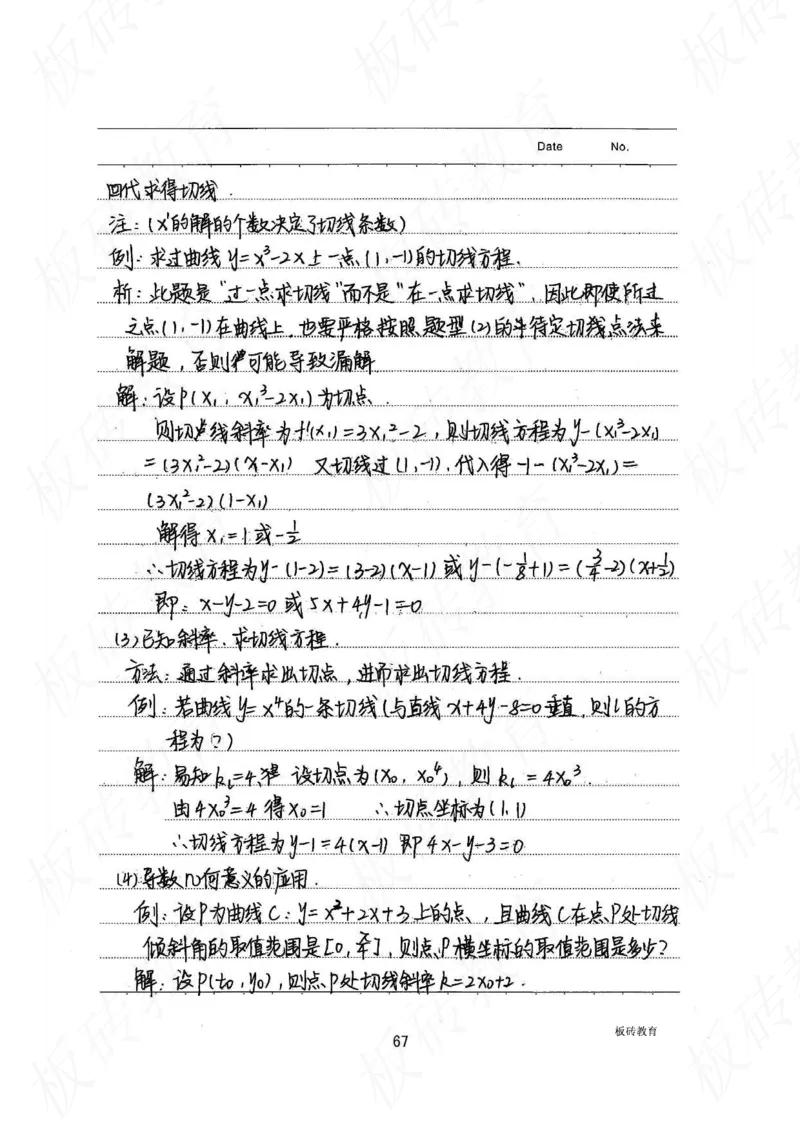 Date No.
四代求得切线.
注:(x₁的解的个数决定了切线条数)
例:求过曲线y=x³-2x上一点(1,-1)的切线方程.
析:此题是"过一点求切线"而不是"在一点求切线",因此即使所过
之点(1,-1)在曲线上,也需严格按照题型(2)的半待定切线点法来
解题,否则可能导致漏解
解:设P(x₁,x₁³-2x₁)为切点、
则切线斜率为f'(x₁)=3x₁²-2,则切线方程为y-(x₁³-2x₁)
=(3x₁²-2)(x-x₁) 又切线过(1,-1),代入得-1-(x₁³-2x₁)=
(3x₁²-2)(1-x₁)
解得x₁=1或-1/2
∴切线方程为y-(1-2)=(3-2)(x-1)或y-(-1/8+1)=(3/4-2)(x+1/2)
即:x-y-2=0或5x+4y-1=0
(3)已知斜率,求切线方程.
方法:通过斜率求出切点,进而求出切线方程.
例:若曲线y=x⁴的一条切线l与直线x+4y-8=0垂直,则l的方
程为(?)
解:易知kl=4, 设切点为(x₀,x₀⁴),则kl=4x₀³.
由4x₀³=4得x₀=1 ∴切点坐标为(1,1)
∴切线方程为y-1=4(x-1)即4x-y-3=0
(4)导数几何意义的应用.
例:设P为曲线C:y=x²+2x+3上的点、,且曲线C在点P处切线
倾斜角的取值范围是[0,π/4],则点P横坐标的取值范围是多少?
解:设P(x₀,y₀),则点P处切线斜率k=2x₀+2.
板砖教育
67